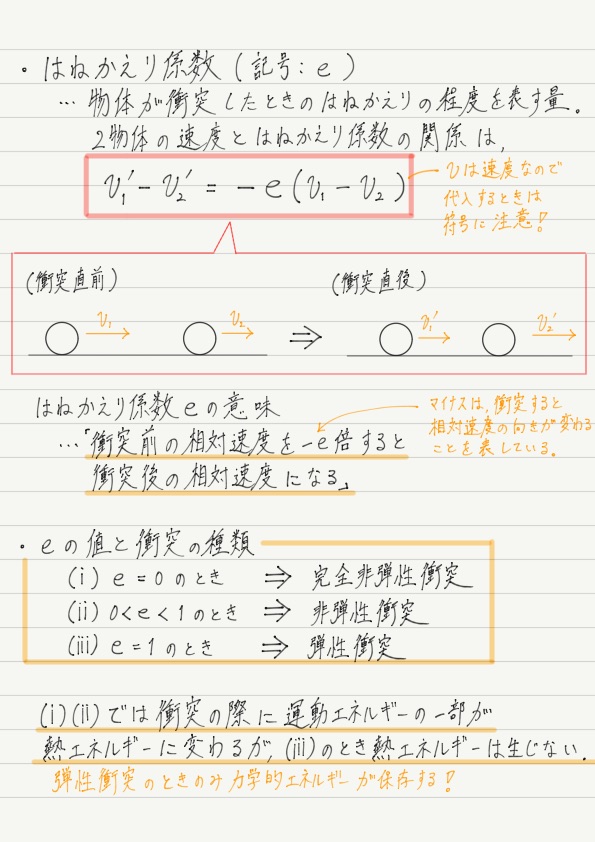 ・はねかえり係数(記号:e)
…物体が衝突したときのはねかえりの程度を表す量。
2物体の速度とはねかえり係数の関係は,
v₁′-v₂′=-e(v₁-v₂)
vは速度なので
代入するときは
符号に注意!
(衝突直前)
(衝突直後)
v₁ v₂ ⇒ v₁′ v₂′
はねかえり係数eの意味
…「衝突前の相対速度を-e倍すると
衝突後の相対速度になる」
マイナスは,衝突すると
相対速度の向きが変わる
ことを表している。
・eの値と衝突の種類
(i) e=0のとき ⇒ 完全非弾性衝突
(ii) 0<e<1のとき ⇒ 非弾性衝突
(iii) e=1のとき ⇒ 弾性衝突
(i)(ii)では衝突の際に運動エネルギーの一部が
熱エネルギーに変わるが,(iii)のとき熱エネルギーは生じない.
弾性衝突のときのみ力学的エネルギーが保存する!